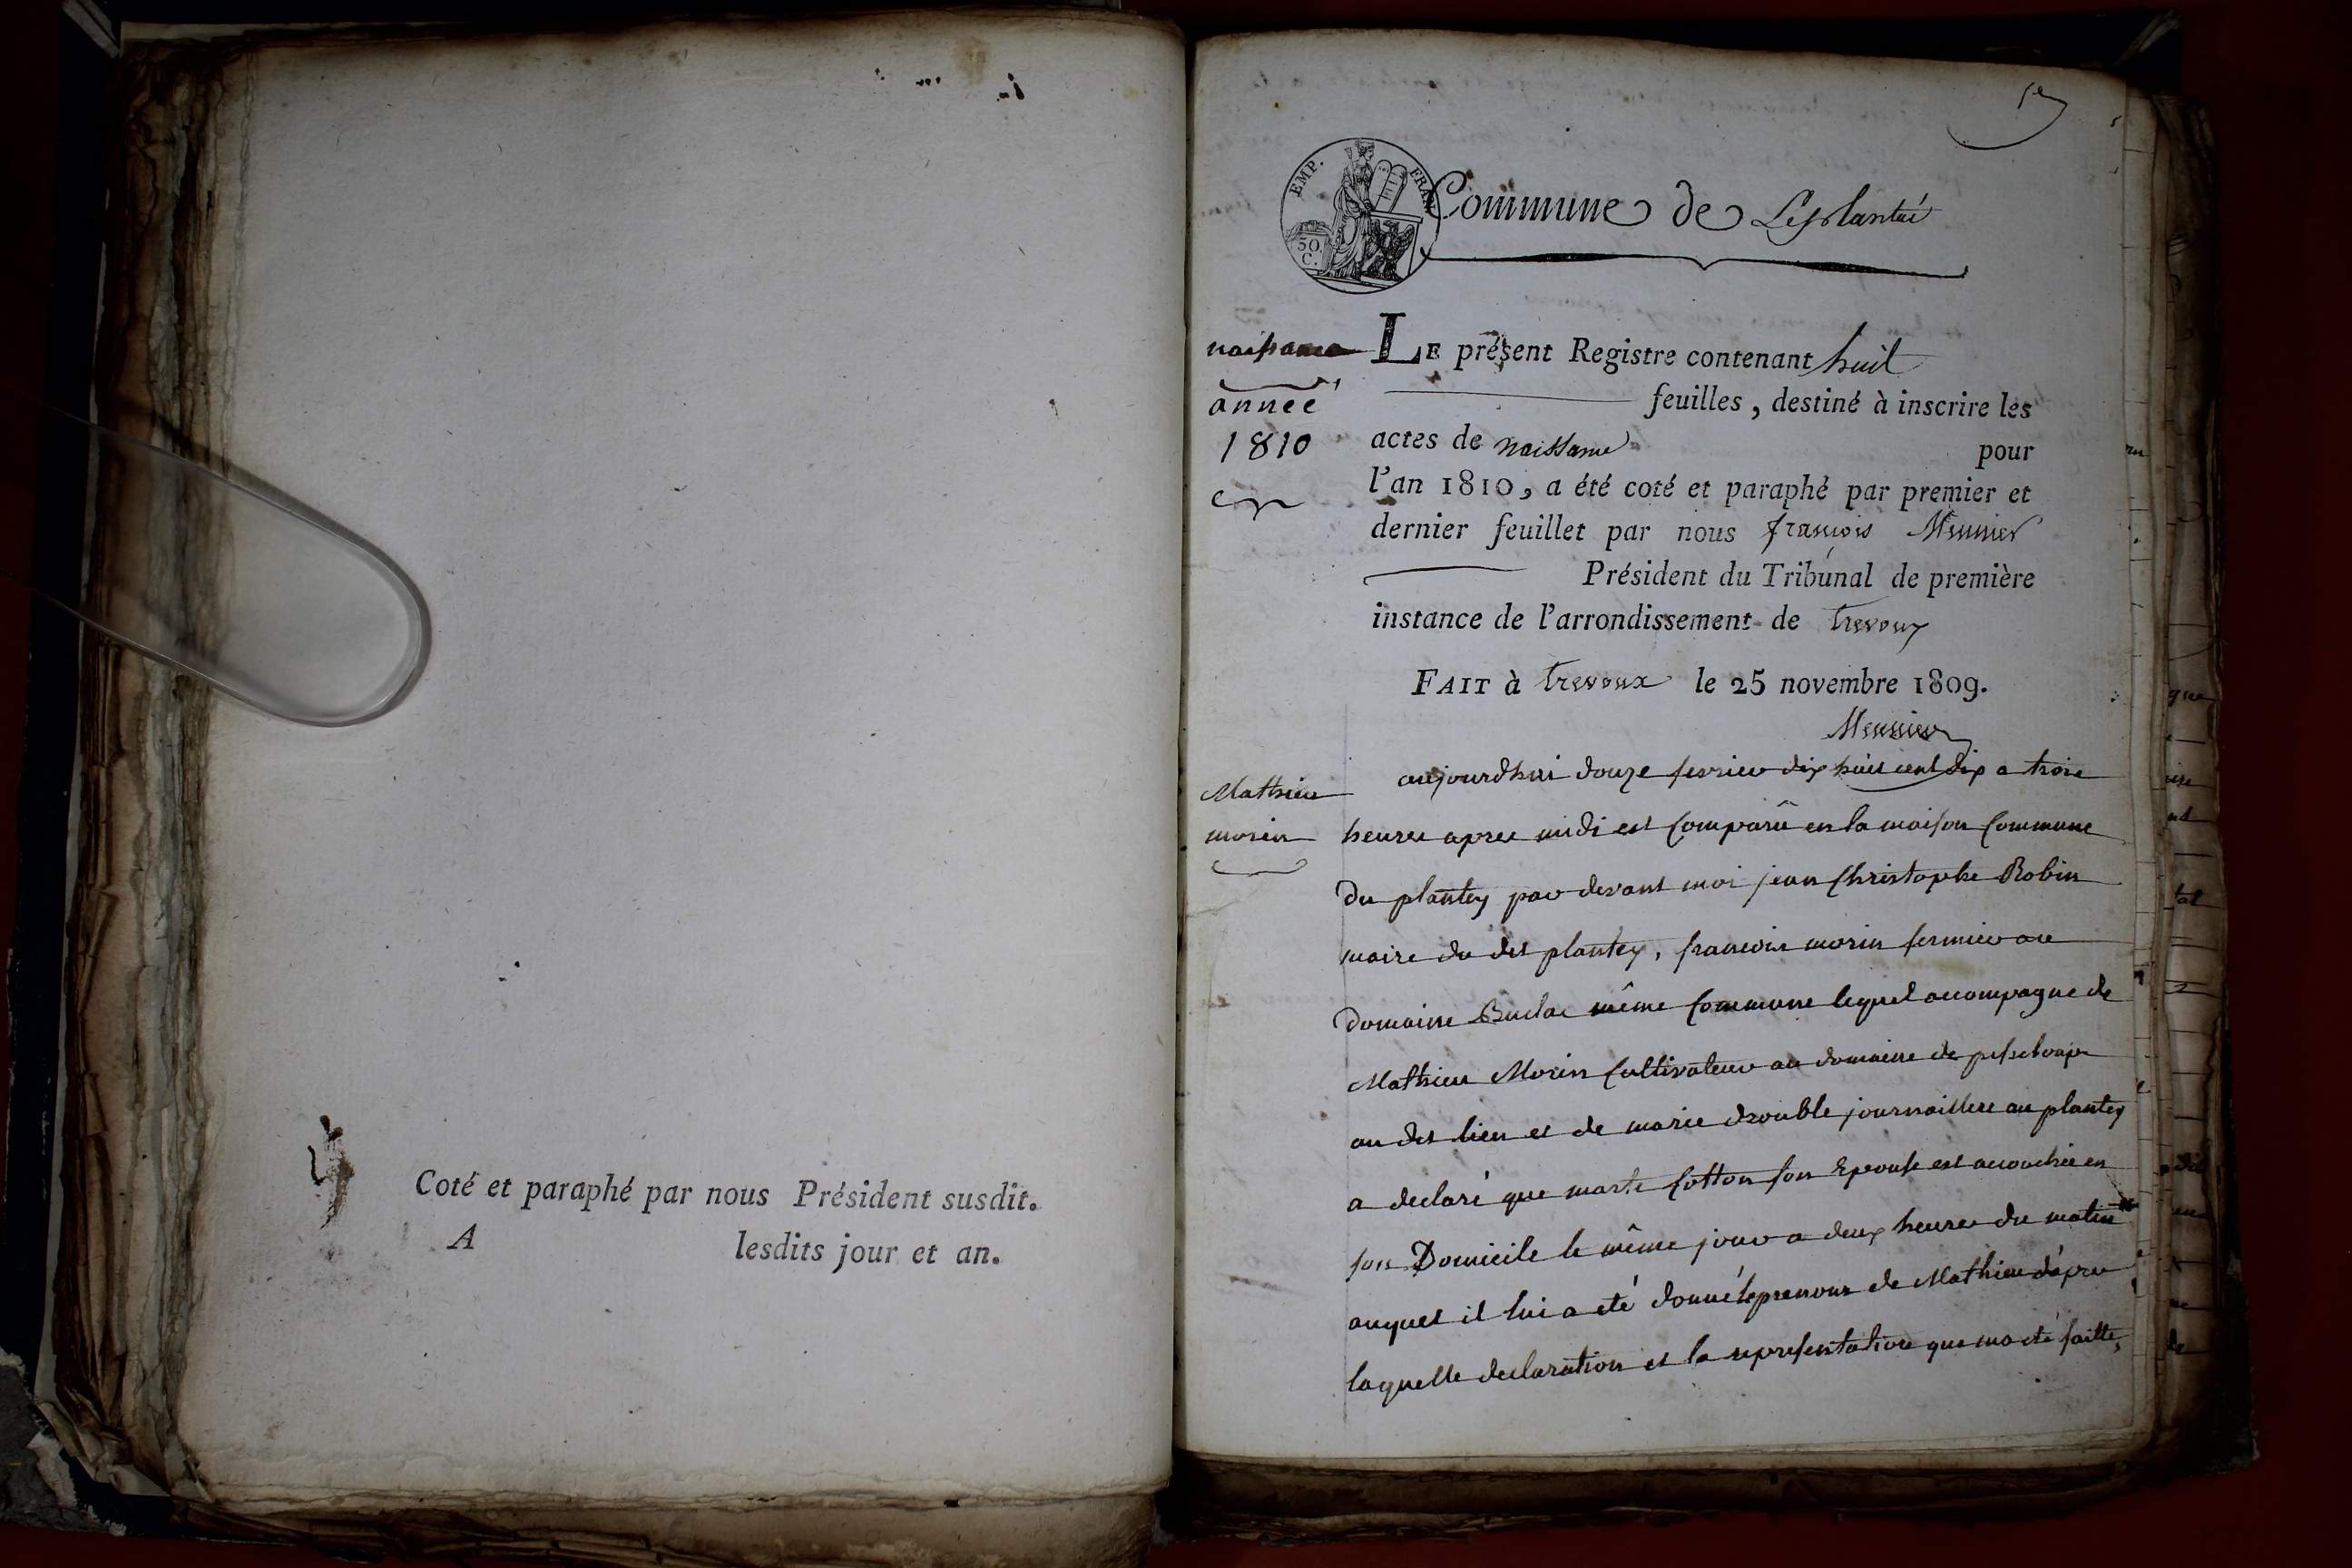 Coté et paraphé par nous Président susdit.
A lesdits jour et an.
EMP. FRAN
50
C.
Commune de Leplantai
naissance
année
1810
LE présent Registre contenant huit
feuilles, destiné à inscrire les
actes de naissance pour
l'an 1810, a été coté et paraphé par premier et
dernier feuillet par nous françois Meunier
Président du Tribunal de première
instance de l'arrondissement de trevoux
FAIT à trevoux le 25 novembre 1809.
Meunier
Mathieu
morin
aujourdhui douze fevrier dix huit cent dix a trois
heures apres midi est Comparû en la maison Commune
du plantey par devant moi jean Christophe Robin
maire du dit plantey, francois morin fermier au
Domaine même Commune lequel accompagne de
Mathieu Morin Cultivateur au domaine de
au dit lieu et de marie drouble journaillere au plantey
a declaré que marte Cotton son Epouse est accouchée en
son Domicile le même jour a deux heures du matin
auquel il lui a eté donné le prenom de Mathieu dápres
laquelle declaration et la representation que ma eté faitte,